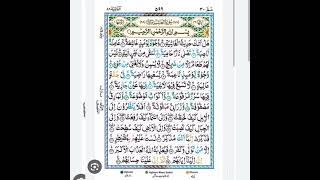 ٥٩٩
بِسْمِ اللّٰهِ الرَّحْمٰنِ الرَّحِيْمِ
هَلْ اَتٰىكَ حَدِيْثُ الْغَاشِيَةِ وُجُوْهٌ يَّوْمَئِذٍ خَاشِعَةٌ عَامِلَةٌ
نَّاصِبَةٌ تَصْلٰى نَارًا حَامِيَةً تُسْقٰى مِنْ عَيْنٍ اٰنِيَةٍ لَيْسَ
لَهُمْ طَعَامٌ اِلَّا مِنْ ضَرِيْعٍ لَّا يُسْمِنُ وَلَا يُغْنِيْ مِنْ جُوْعٍ
وُجُوْهٌ يَّوْمَئِذٍ نَّاعِمَةٌ لِّسَعْيِهَا رَاضِيَةٌ فِيْ جَنَّةٍ عَالِيَةٍ
لَّا تَسْمَعُ فِيْهَا لَاغِيَةً فِيْهَا عَيْنٌ جَارِيَةٌ فِيْهَا سُرُرٌ
مَّرْفُوْعَةٌ وَّاَكْوَابٌ مَّوْضُوْعَةٌ وَّنَمَارِقُ
مَصْفُوْفَةٌ وَّزَرَابِيُّ مَبْثُوْثَةٌ اَفَلَا يَنْظُرُوْنَ اِلَى
الْاِبِلِ كَيْفَ خُلِقَتْ وَاِلَى السَّمَآءِ كَيْفَ رُفِعَتْ وَاِلَى
الْجِبَالِ كَيْفَ نُصِبَتْ وَاِلَى الْاَرْضِ كَيْفَ سُطِحَتْ
فَذَكِّرْ اِنَّمَآ اَنْتَ مُذَكِّرٌ لَسْتَ عَلَيْهِمْ بِمُصَيْطِرٍ اِلَّا
مَنْ تَوَلّٰى وَكَفَرَ فَيُعَذِّبُهُ اللّٰهُ الْعَذَابَ الْاَكْبَرَ
اِنَّ اِلَيْنَآ اِيَابَهُمْ ثُمَّ اِنَّ عَلَيْنَا حِسَابَهُمْ